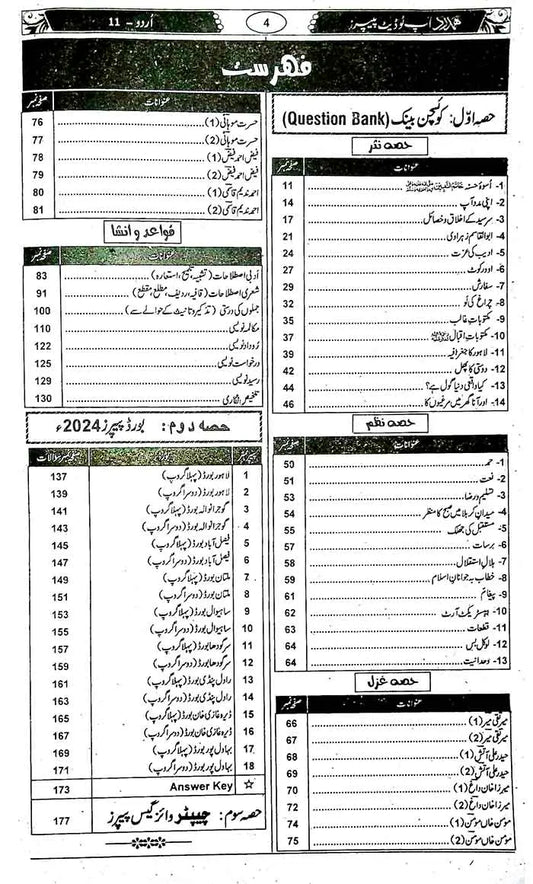 ہمدرد اپ ٹو ڈیٹ پیپرز
4
اُردو - 11
فہرست
حصہ اوّل: کوئسچن بینک (Question Bank)
حصہ نثر
عنوانات صفحہ نمبر
1- اُسوۂ حسنہ 11
2- اپنی مدد آپ 14
3- سرسید کے اخلاق و خصائل 17
4- ابوالقاسم زہراوی 21
5- ادیب کی عزت 24
6- اوورکوٹ 27
7- سفارش 29
8- چراغ کی لَو 32
9- مکتوباتِ غالب 35
10- مکتوباتِ اقبال 37
11- لاہور کا جغرافیہ 39
12- دوستی کا پھل 42
13- کیا واقعی دنیا گول ہے؟ 44
14- اور آنا گھر میں مرغیوں کا 46
حصہ نظم
عنوانات صفحہ نمبر
1- حمد 50
2- نعت 51
3- تسلیم و رضا 53
4- میدانِ کربلا میں صبح کا منظر 54
5- مستقبل کی جھلک 55
6- برسات 57
7- ہلالِ استقلال 58
8- خطاب بہ جوانانِ اسلام 59
9- پیغام 61
10- ایبسٹریکٹ آرٹ 62
11- قطعات 63
12- لوکل بس 64
13- وحدانیت 64
حصہ غزل
عنوانات صفحہ نمبر
میر تقی میر (1) 66
میر تقی میر (2) 67
حیدر علی آتش (1) 68
حیدر علی آتش (2) 69
میرزا خان داغ (1) 70
میرزا خان داغ (2) 72
مومن خاں مومن (1) 74
مومن خاں مومن (2) 75
عنوانات صفحہ نمبر
حسرت موہانی (1) 76
حسرت موہانی (2) 77
فیض احمد فیض (1) 78
فیض احمد فیض (2) 79
احمد ندیم قاسمی (1) 80
احمد ندیم قاسمی (2) 81
قواعد و انشا
عنوانات صفحہ نمبر
اَدبی اصطلاحات (تشبیہ، تلمیح، استعارہ) 83
شعری اصطلاحات (قافیہ، ردیف، مطلع، مقطع) 91
جملوں کی درستی (تذکیر و تانیث کے حوالے سے) 100
مکالمہ نویسی 110
رُوداد نویسی 122
درخواست نویسی 125
رسید نویسی 129
تلخیص نگاری 130
حصہ دوم: بورڈ پیپرز 2024ء
صفحہ نمبر سوالات
1 لاہور بورڈ (پہلا گروپ) 137
2 لاہور بورڈ (دوسرا گروپ) 139
3 گوجرانوالہ بورڈ (پہلا گروپ) 141
4 گوجرانوالہ بورڈ (دوسرا گروپ) 143
5 فیصل آباد بورڈ (پہلا گروپ) 145
6 فیصل آباد بورڈ (دوسرا گروپ) 147
7 ملتان بورڈ (پہلا گروپ) 149
8 ملتان بورڈ (دوسرا گروپ) 151
9 ساہیوال بورڈ (پہلا گروپ) 153
10 ساہیوال بورڈ (دوسرا گروپ) 155
11 سرگودھا بورڈ (پہلا گروپ) 157
12 سرگودھا بورڈ (دوسرا گروپ) 159
13 راولپنڈی بورڈ (پہلا گروپ) 161
14 راولپنڈی بورڈ (دوسرا گروپ) 163
15 ڈیرہ غازی خان بورڈ (پہلا گروپ) 165
16 ڈیرہ غازی خان بورڈ (دوسرا گروپ) 167
17 بہاول پور بورڈ (پہلا گروپ) 169
18 بہاول پور بورڈ (دوسرا گروپ) 171
☆ Answer Key 173
حصہ سوم: چیپٹر وائز گیس پیپرز 177